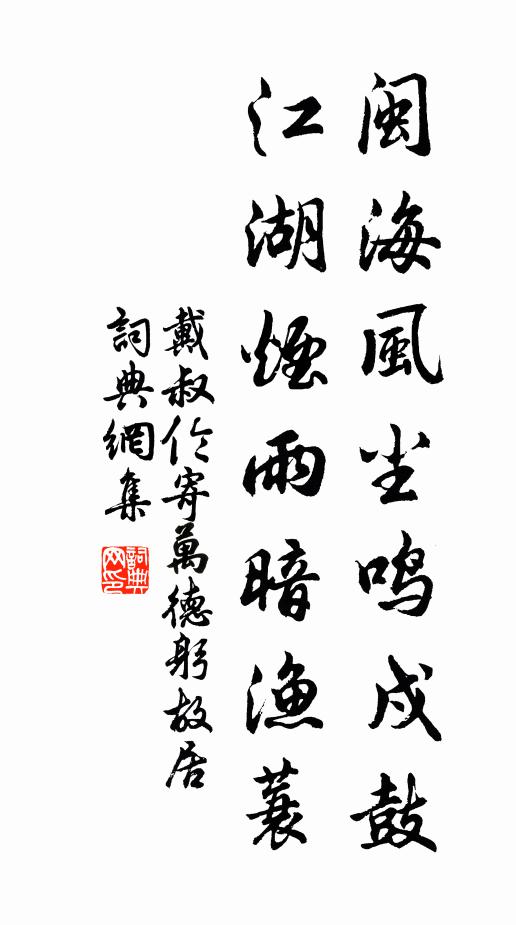 闽海風尘鸣戍鼓
江湖煙雨暗渔蓑
戴叔伦寄萬德躬故居
詞典網集
詞典网印